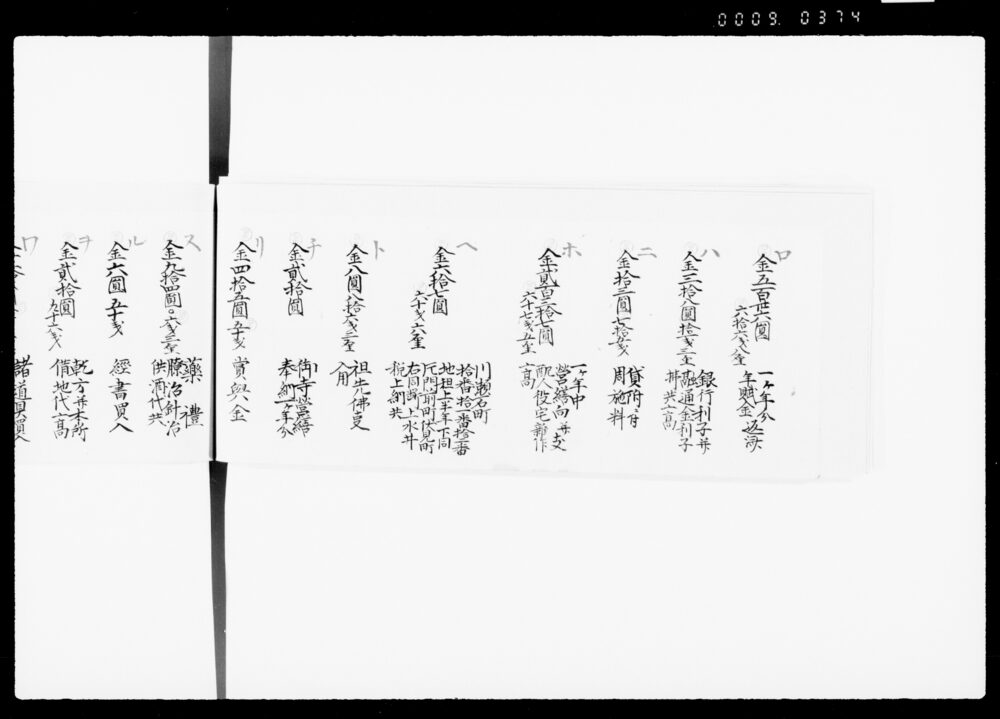 0009. 0374
ロ
金五百廿六圓
六拾六戔八厘
一ヶ年分
年賦金返済
ハ
金三拾八圓拾戔三厘
銀行利子并
融通金利子
并共高
ニ
金拾三圓七拾戔
貸附府
周施料
ホ
金貳百三拾七圓
六十七戔五厘
一ヶ年中
營繕向并支
配人役宅新作
高
ヘ
金六拾七圓
六十戔六厘
川瀬石町
拾番拾一番拾番
地担上半年下同
元門前町伏見町
右同断上水井
税上納共
ト
金八圓八拾六戔三厘
祖先佛㕝
入用
チ
金貳拾圓
御寺營繕
奉納一ケ年分
リ
金四拾五圓五十戔
賞與金
ヌ
金九拾四圓〇六戔三厘
藥禮
療治針治
供酒代共
ル
金六圓五十戔
經書買入
ヲ
金貳拾圓
九十六戔
乾方并本所
借地代高
ワ
諸道具買入